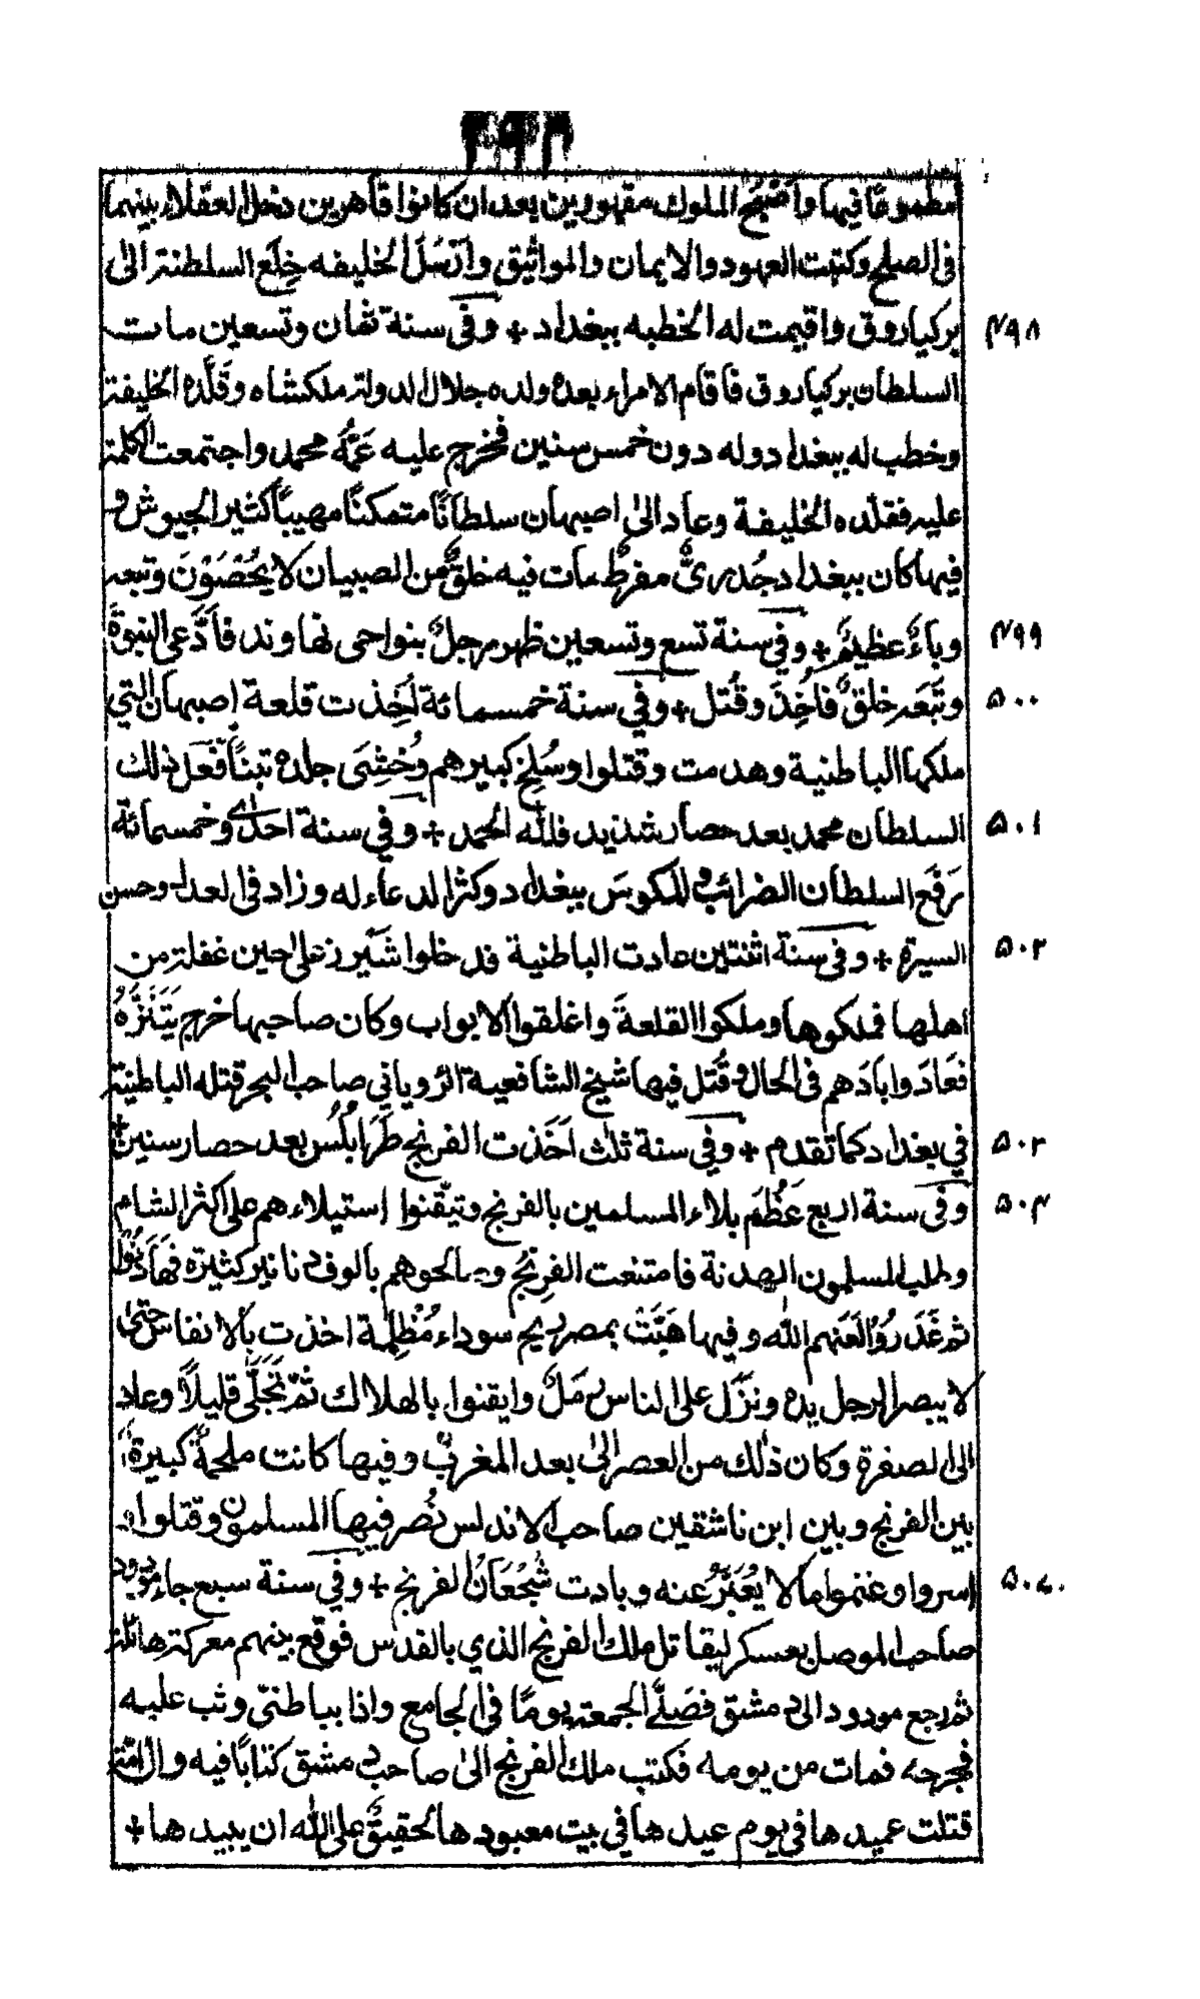 مطموعًا فيها واَصْبَحَ الملوك مقهورين بعد ان كانوا قاهرين دخل العقلاء بينهما
فى الصلح وكتبت العهود والايمان والمواثيق واَرْسَلَ الخليفه خِلَع السلطنة الىٰ
بركياروق واقيمت له الخطبه ببغداد + وفى سنة ثمان وتسعين مات
۴۹۸
السلطان بركياروق فاقام الامراء بعده ولده جلال الدولة ملكشاه وقَلَّده الخليفة
وخطب له ببغداد وله دون خمس سنين فخرج عليه عَمُّهُ محمد واجتمعت الكلمة
عليه فقلّده الخليفة وعاد الىٰ اصبهان سلطانًا متمكنًا مهيبًا كثير الجيوش و
فيها كان ببغداد جُدَرىٌّ مفرطٌ مات فيه خلقٌ من الصبيان لا يُحْصَوْنَ وتبعه
وباءٌ عظيمٌ + وفي سنة تسع وتسعين ظهر رجلٌ بنواحى نهاوند فادَّعى النبوة
۴۹۹
وتَبَعَه خلقٌ فاُخِذَ وقُتل + وفي سنة خمسمائة اُخِذت قلعة اصبهان التي
۵۰۰
ملكها الباطنية وهدمت وقتلوا وسُلِخ كبيرهم وحُشِىَ جلده تبنًا فَعَل ذلك
السلطان محمد بعد حصار شديد فللّٰه الحمد + وفي سنة احدىٰ وخمسمائة
۵۰۱
رَفَع السلطان الضرائب والمكوسَ ببغداد وكثر الدعاء له وزاد فى العدل وحسن
السيرة + وفى سنة اثنتين عادت الباطنية فدخلوا شَيْزر على حين غفلة من
۵۰۲
اهلها فملكوها وملكوا القلعةَ واغلقوا الابواب وكان صاحبها خرج يَتَنَزَّهُ
فعَادَ واَبادَهم فى الحال وقُتل فيها شيخ الشافعية الرُوياني صاحب البحر قتله الباطنية
في بغداد كما تقدم + وفي سنة ثلث اَخَذت الفرنج طَرَابُلُس بعد حصار سنين +
۵۰۳
وفى سنة اربع عَظُمَ بلاء المسلمين بالفرنج وتيقّنوا استيلاءهم على اكثر الشام
۵۰۴
وطلب المسلمون الهدنة فامتنعت الفِرنجُ وصالحوهم بالوف دنانير كثيرة فهَادَنُوا
ثم غَدَرُوْا لعَنهم اللّٰه وفيها هَبَّتْ بمصر ريح سوداء مُظْلِمة اخذت بالانفاس حتىٰ
لا يبصر الرجل يده ونزَل على الناس رَمَلٌ وايقنوا بالهلاك ثمّ تَجَلّٰى قليلًا وعاد
الى الصفرة وكان ذٰلك من العصر الىٰ بعد المغرب وفيها كانت ملحمةٌ كبيرةٌ
بين الفرنج وبين ابن تاشقين صاحب الاندلس نُصر فيها المسلمون وقتلوا و
اسروا وغنموا ما لا يُعَبَّرُ عنه وبادت شُجْعَانُ الفرنج + وفي سنة سبع جاء مودود
۵۰۷
صاحب الموصل بعسكر ليقاتل ملك الفرنج الذي بالقدس فوقع بينهم معركة هائلة
ثم رجع مودود الىٰ دمشق فصَلَّى الجمعة يومًا في الجامع واذا بباطنىّ وثب عليه
فجرحه فمات من يومه فكتب ملك الفرنج الىٰ صاحب دمشق كتابًا فيه وانّ امّة
قتلت عميدها في يوم عيدها في بيت معبودها لحقيقٌ على اللّٰه ان يبيدها +